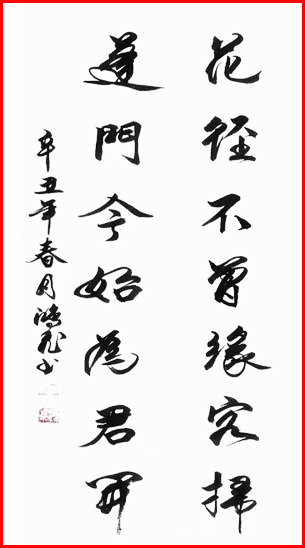 花徑不曾緣客掃
蓬門今始為君開
辛丑年春月鴻飛书